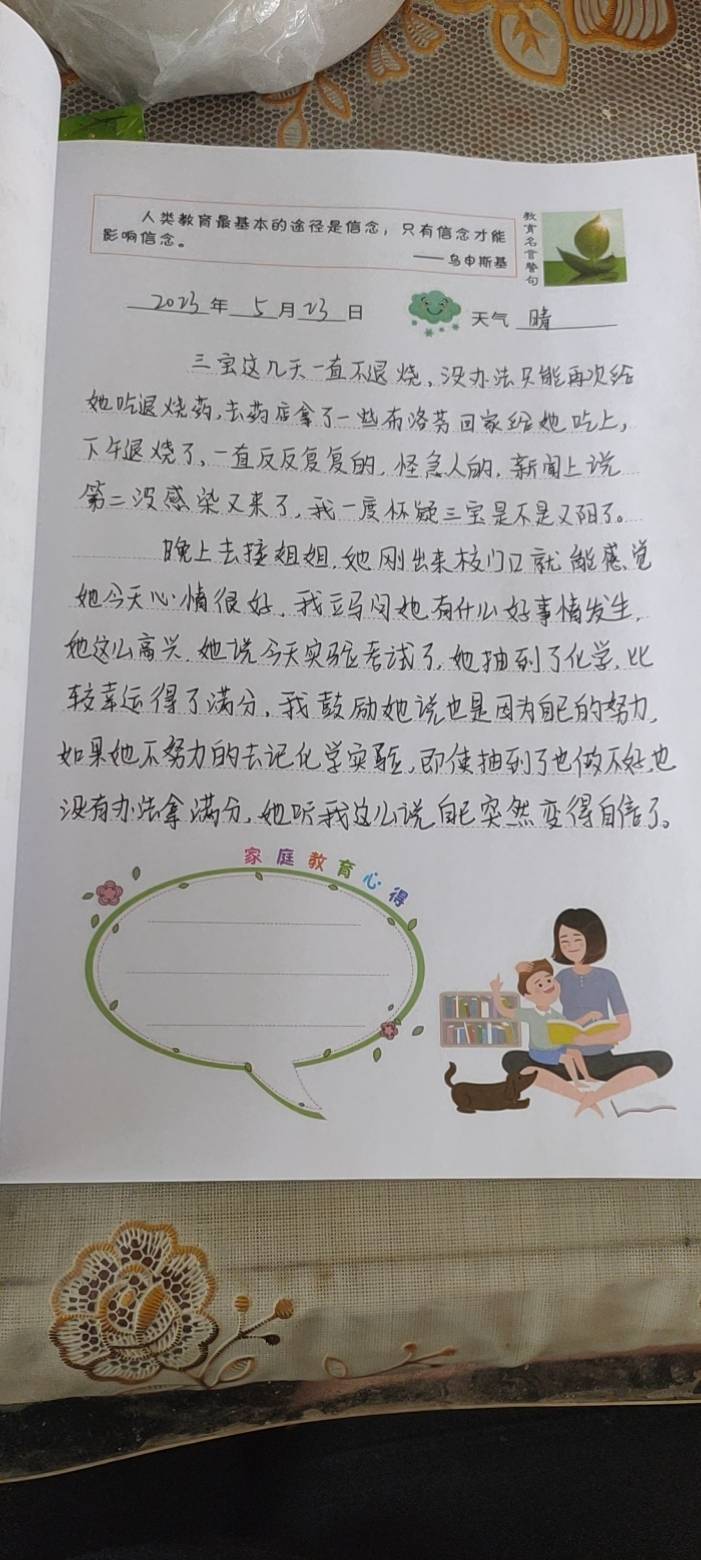 人类教育最基本的途径是信念，只有信念才能
影响信念。
——乌申斯基
教育名言警句
2023年 5月23日 天气 晴
三宝这几天一直不退烧，没办法只能再次给
她吃退烧药，去药店拿了一些布洛芬回家给她吃上，
下午退烧了，一直反反复复的，怪急人的，新闻上说
第二波感染又来了，我一度怀疑三宝是不是又阳了。
晚上去接姐姐，她刚出来校门口就能感觉
她今天心情很好，我立马问她有什么好事情发生，
她这么高兴，她说今天实验考试了，她抽到了化学，比
较幸运得了满分，我鼓励她说也是因为自己的努力，
如果她不努力的去记化学实验，即使抽到了也做不好，也
没有办法拿满分，她听我这么说自己突然变得自信了。
家庭教育心得